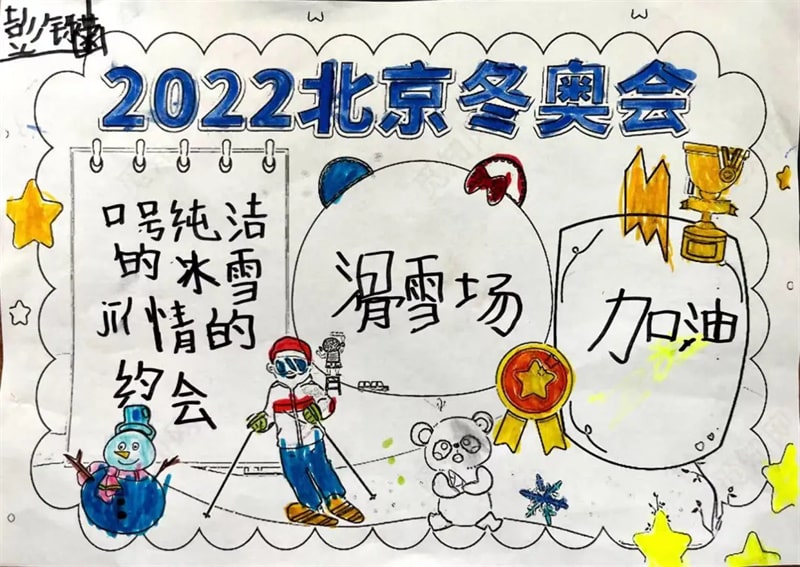 2022北京冬奥会
口号纯洁
的冰雪
jī情的
约会
滑雪场
加油